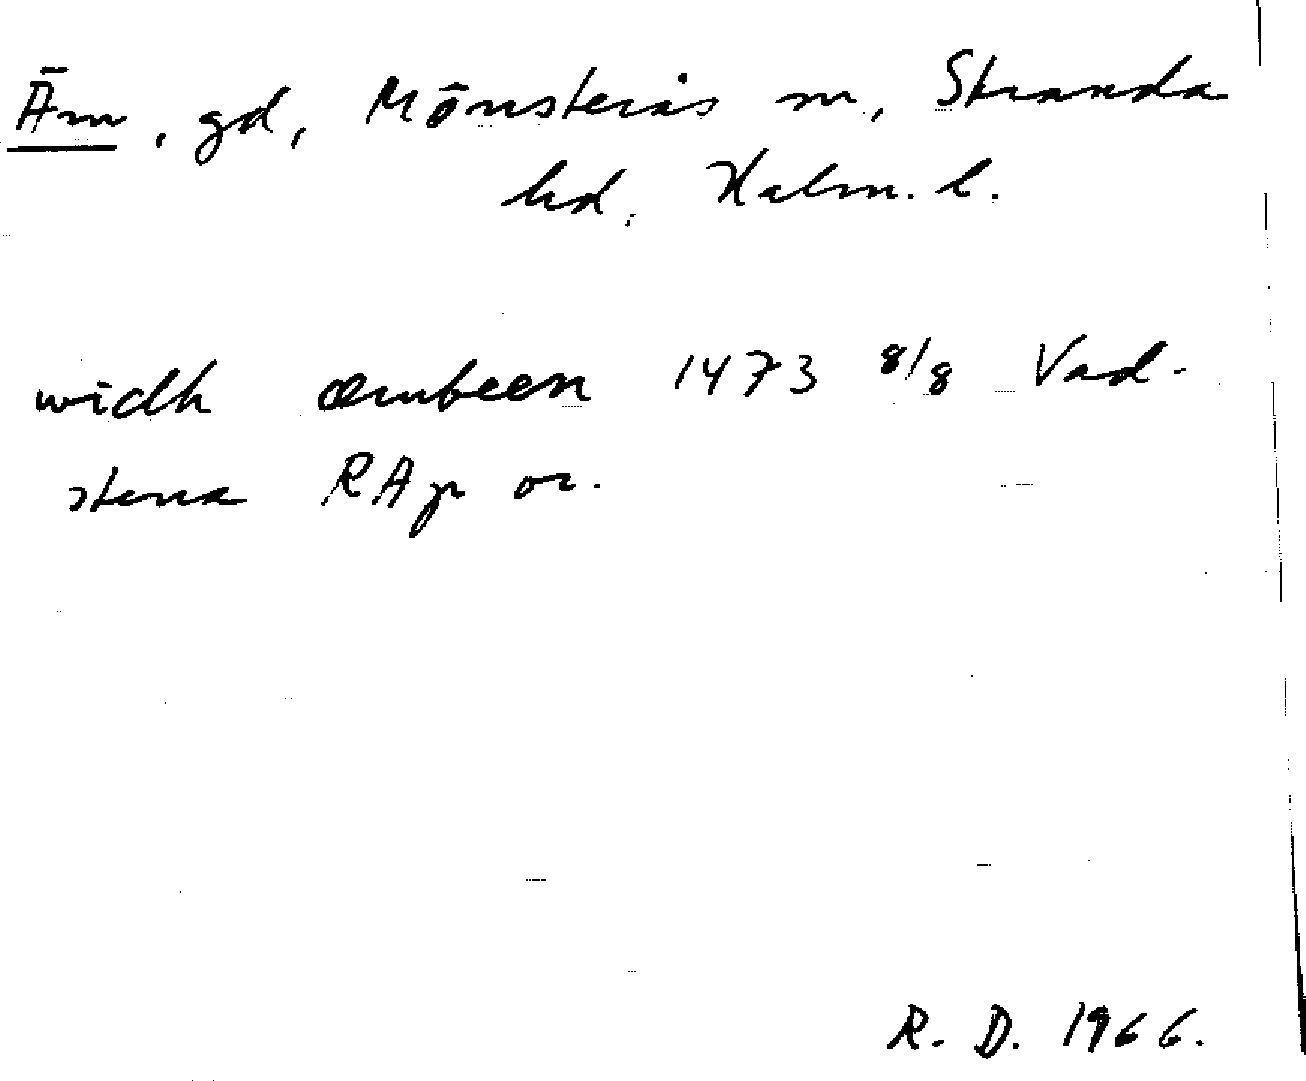 Äm, gd, Mönsterås sn, Stranda
hd. Kalm. l.
widh æmbeen 1473 8/8 Vad-
stena RAp or.
R. D. 1966.